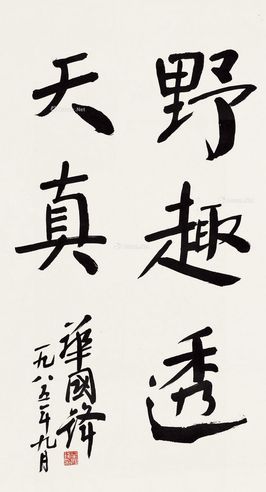 野趣透
天真
華國鋒
一九八五年九月